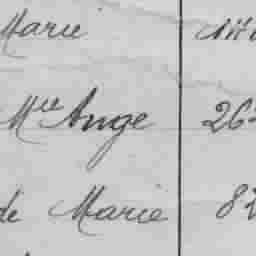 Marie
Mce Ange 26
de Marie 8